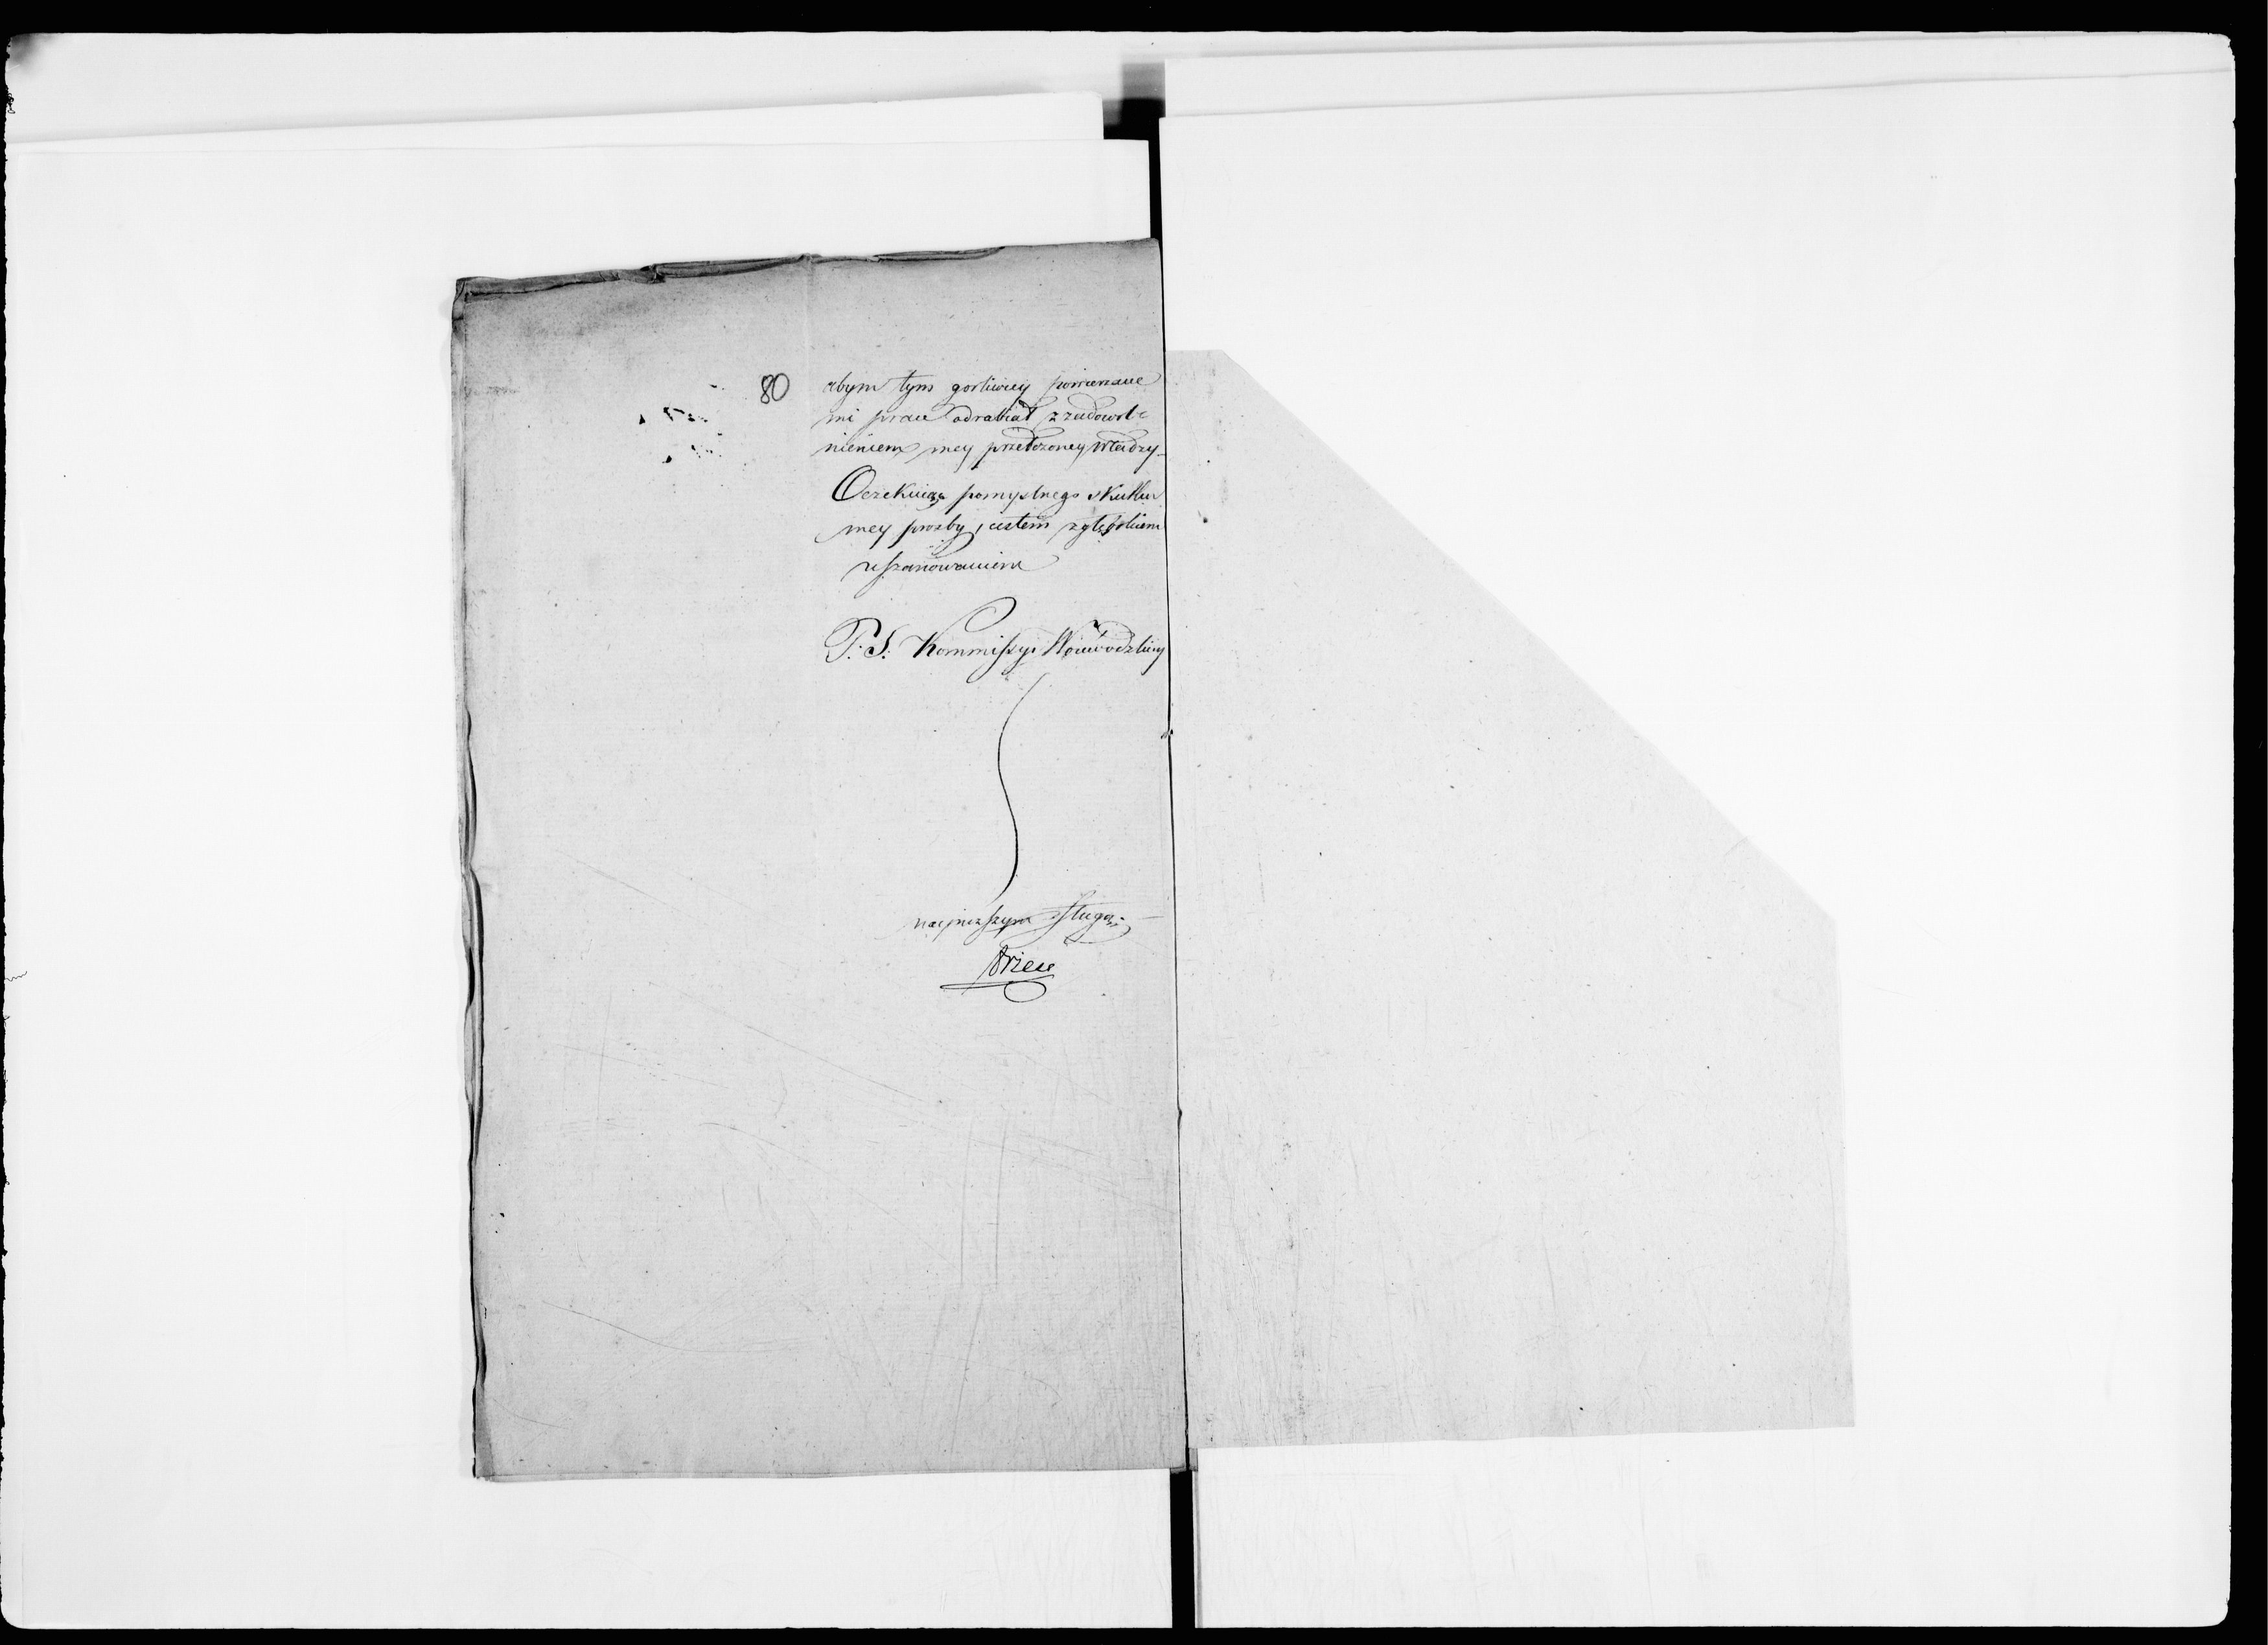 80
abym tym gorliwiey powierzane
mi prace odrabiał z zadowol-
nieniem mey przełożoney Władzy
Oczekuiąc pomyslnego skutku
mey prozby, iestem z głębokiem
uszanowaniem
P: S: Kommissyi Woiewodzkiey
nayniższym sługą